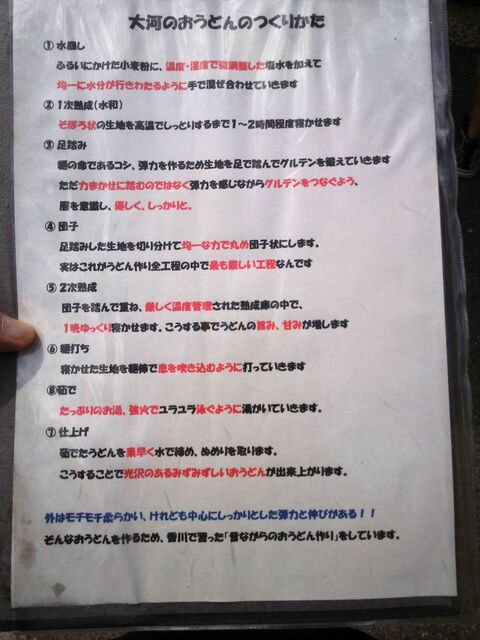 大河のおうどんのつくりかた
① 水回し
ふるいにかけた小麦粉に、温度・湿度で微調整した塩水を加えて
均一に水分が行きわたるように手で混ぜ合わせていきます
② 1次熟成(水和)
そぼろ状の生地を高温でしっとりするまで1〜2時間程度寝かせます
③ 足踏み
麺の命であるコシ、弾力を作るため生地を足で踏んでグルテンを鍛えていきます
ただ力まかせに踏むのではなく弾力を感じながらグルテンをつなぐよう、
層を意識し、優しく、しっかりと。
④ 団子
足踏みした生地を切り分けて均一な力で丸め団子状にします。
実はこれがうどん作り全工程の中で最も難しい工程なんです
⑤ 2次熟成
団子を踏んで重ね、厳しく温度管理された熟成庫の中で、
1晩ゆっくり寝かせます。こうする事でうどんの旨み、甘みが増します
⑥ 麺打ち
寝かせた生地を麺棒で息を吹き込むように打っていきます
⑧茹で
たっぷりのお湯、強火でユラユラ泳ぐように湯がいていきます。
⑦ 仕上げ
茹でたうどんを素早く水で締め、ぬめりを取ります。
こうすることで光沢のあるみずみずしいおうどんが出来上がります。
外はモチモチ柔らかい、けれども中心にしっかりとした弾力と伸びがある!!
そんなおうどんを作るため、香川で習った「昔ながらのおうどん作り」をしています。